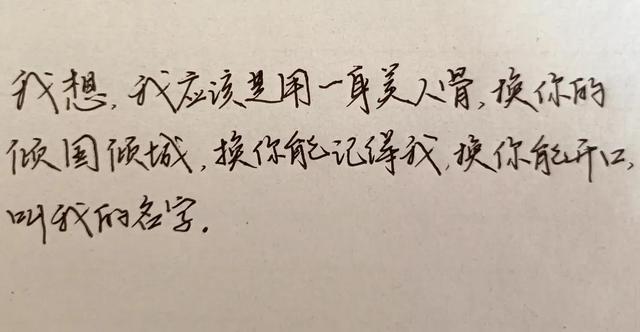 我想,我应该是用一身美人骨,换你的
倾国倾城,换你能记得我,换你能开口,
叫我的名字.